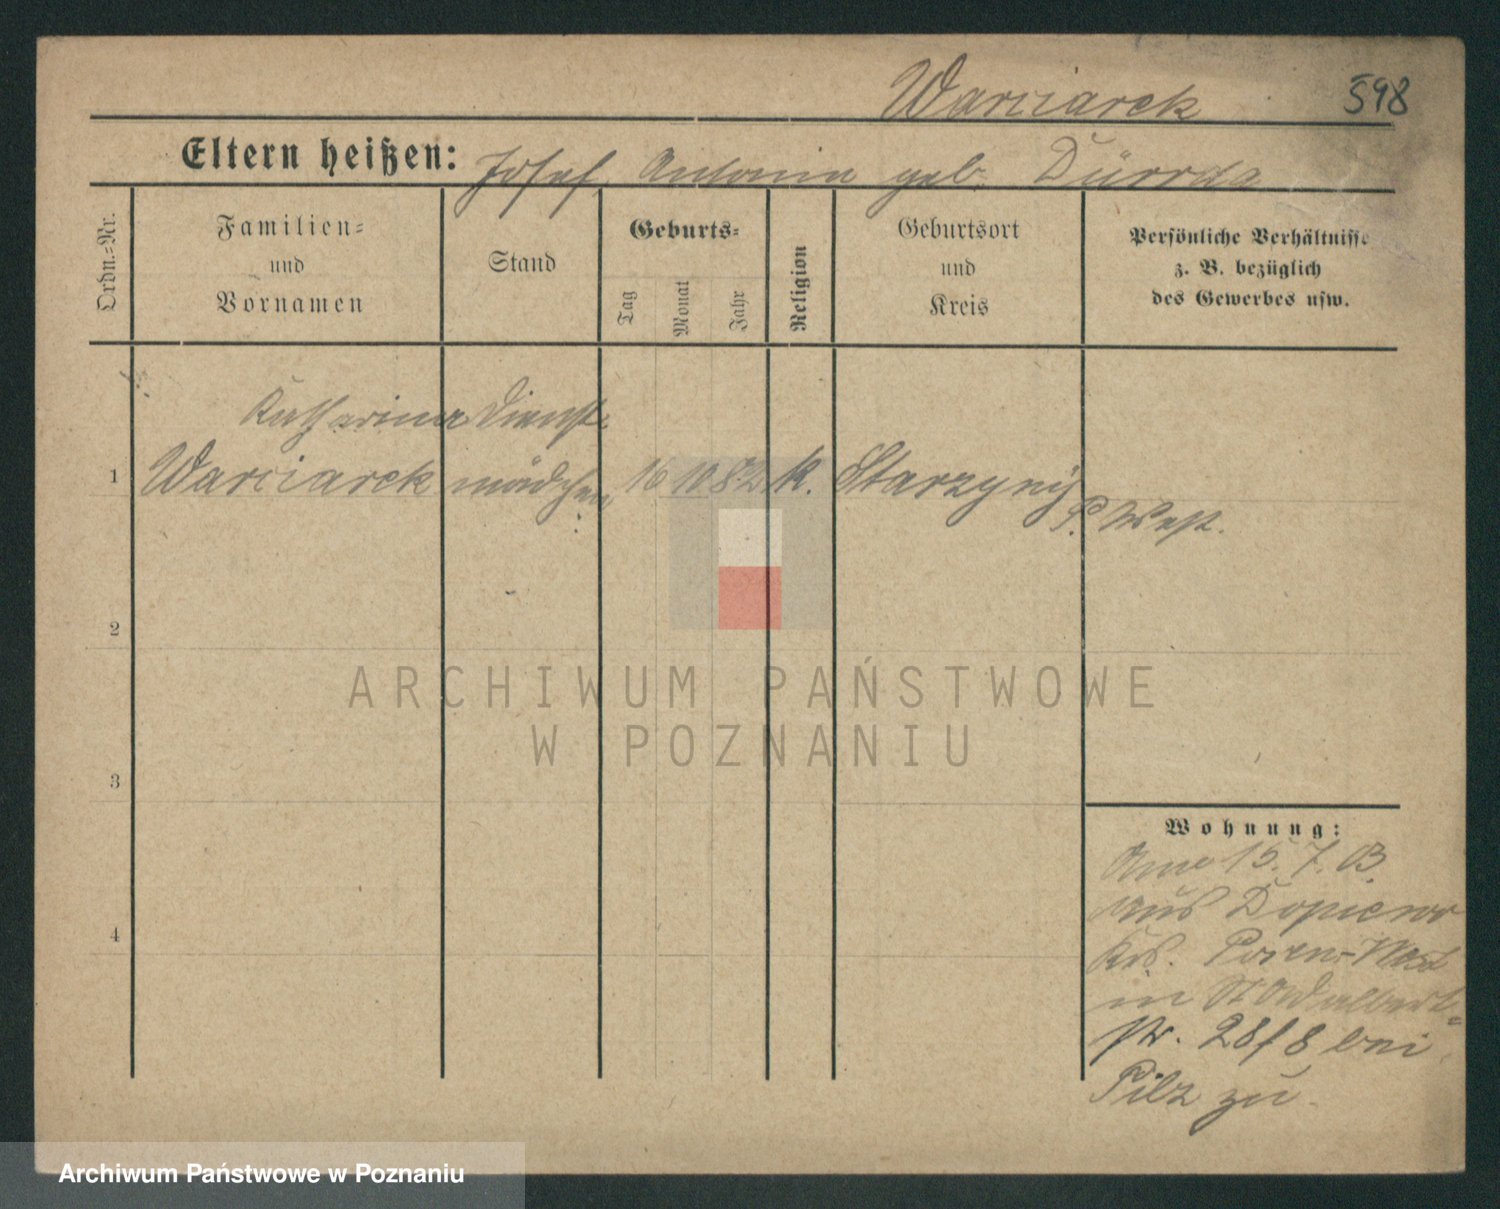 Warciarek 598
Eltern heißen: Josef, Antonia geb.
Ordn.-Nr.
Familien-
und
Vornamen
Stand
Geburts-
Tag
Monat
Jahr
Religion
Geburtsort
und
Kreis
Persönliche Verhältnisse
z. B. bezüglich
des Gewerbes usw.
Katharina Dienst-
1 Warciarek mädchen 16 10 82 K. Starzyny
P. West.
2
ARCHIWUM PAŃSTWOWE
W POZNANIU
3
Wohnung:
Am 15.7.03.
aus Dopiewo
Krs. Posen-West
in St Adalbert-
str. 28/8 bei
Pilz zu.
4
Archiwum Państwowe w Poznaniu